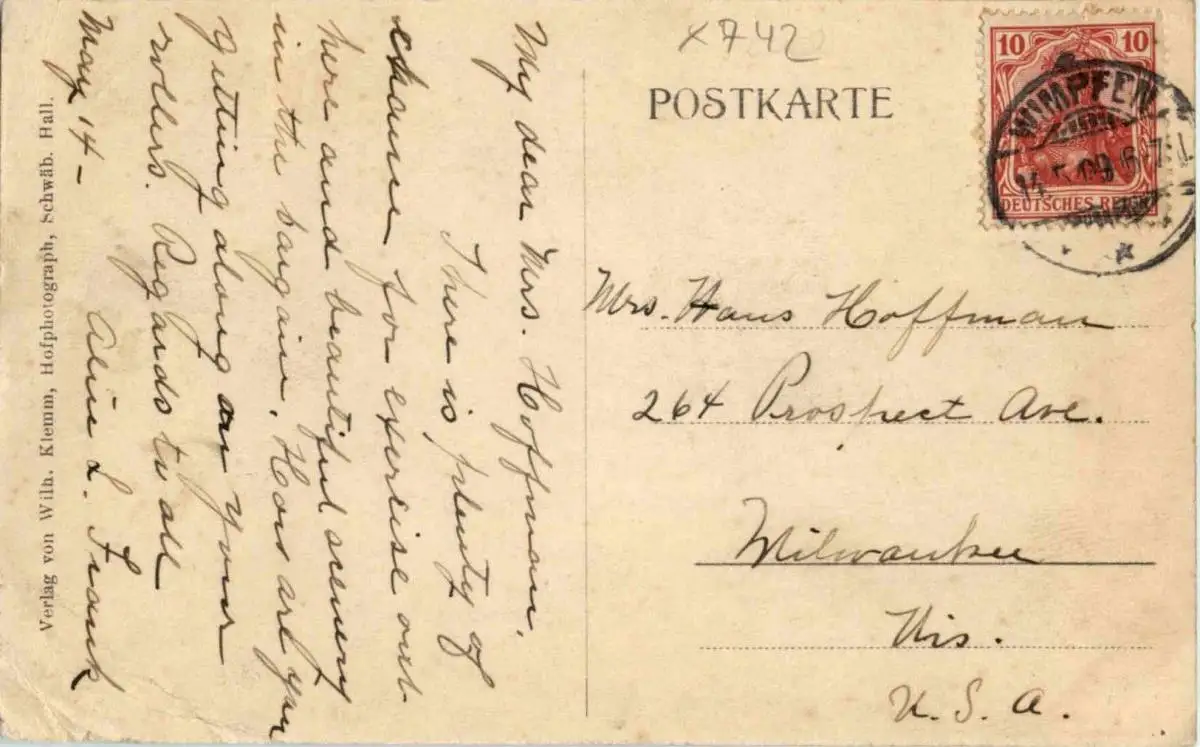 My dear Mrs. Hoffman,
There is plenty of
chance for exercise out
here and beautiful scenery
in the bargain. How are you
getting along on your
rollers. Regards to all
Aline L. Frank
May 14 –
Verlag von Wilh. Klemm, Hofphotograph, Schwäb. Hall.
x 742
POSTKARTE
10 10
DEUTSCHES REICH
WIMPFEN
14.5.09. 6-7
Mrs. Hans Hoffman
264 Prospect Ave.
Milwaukee
Wis.
U. S. A.